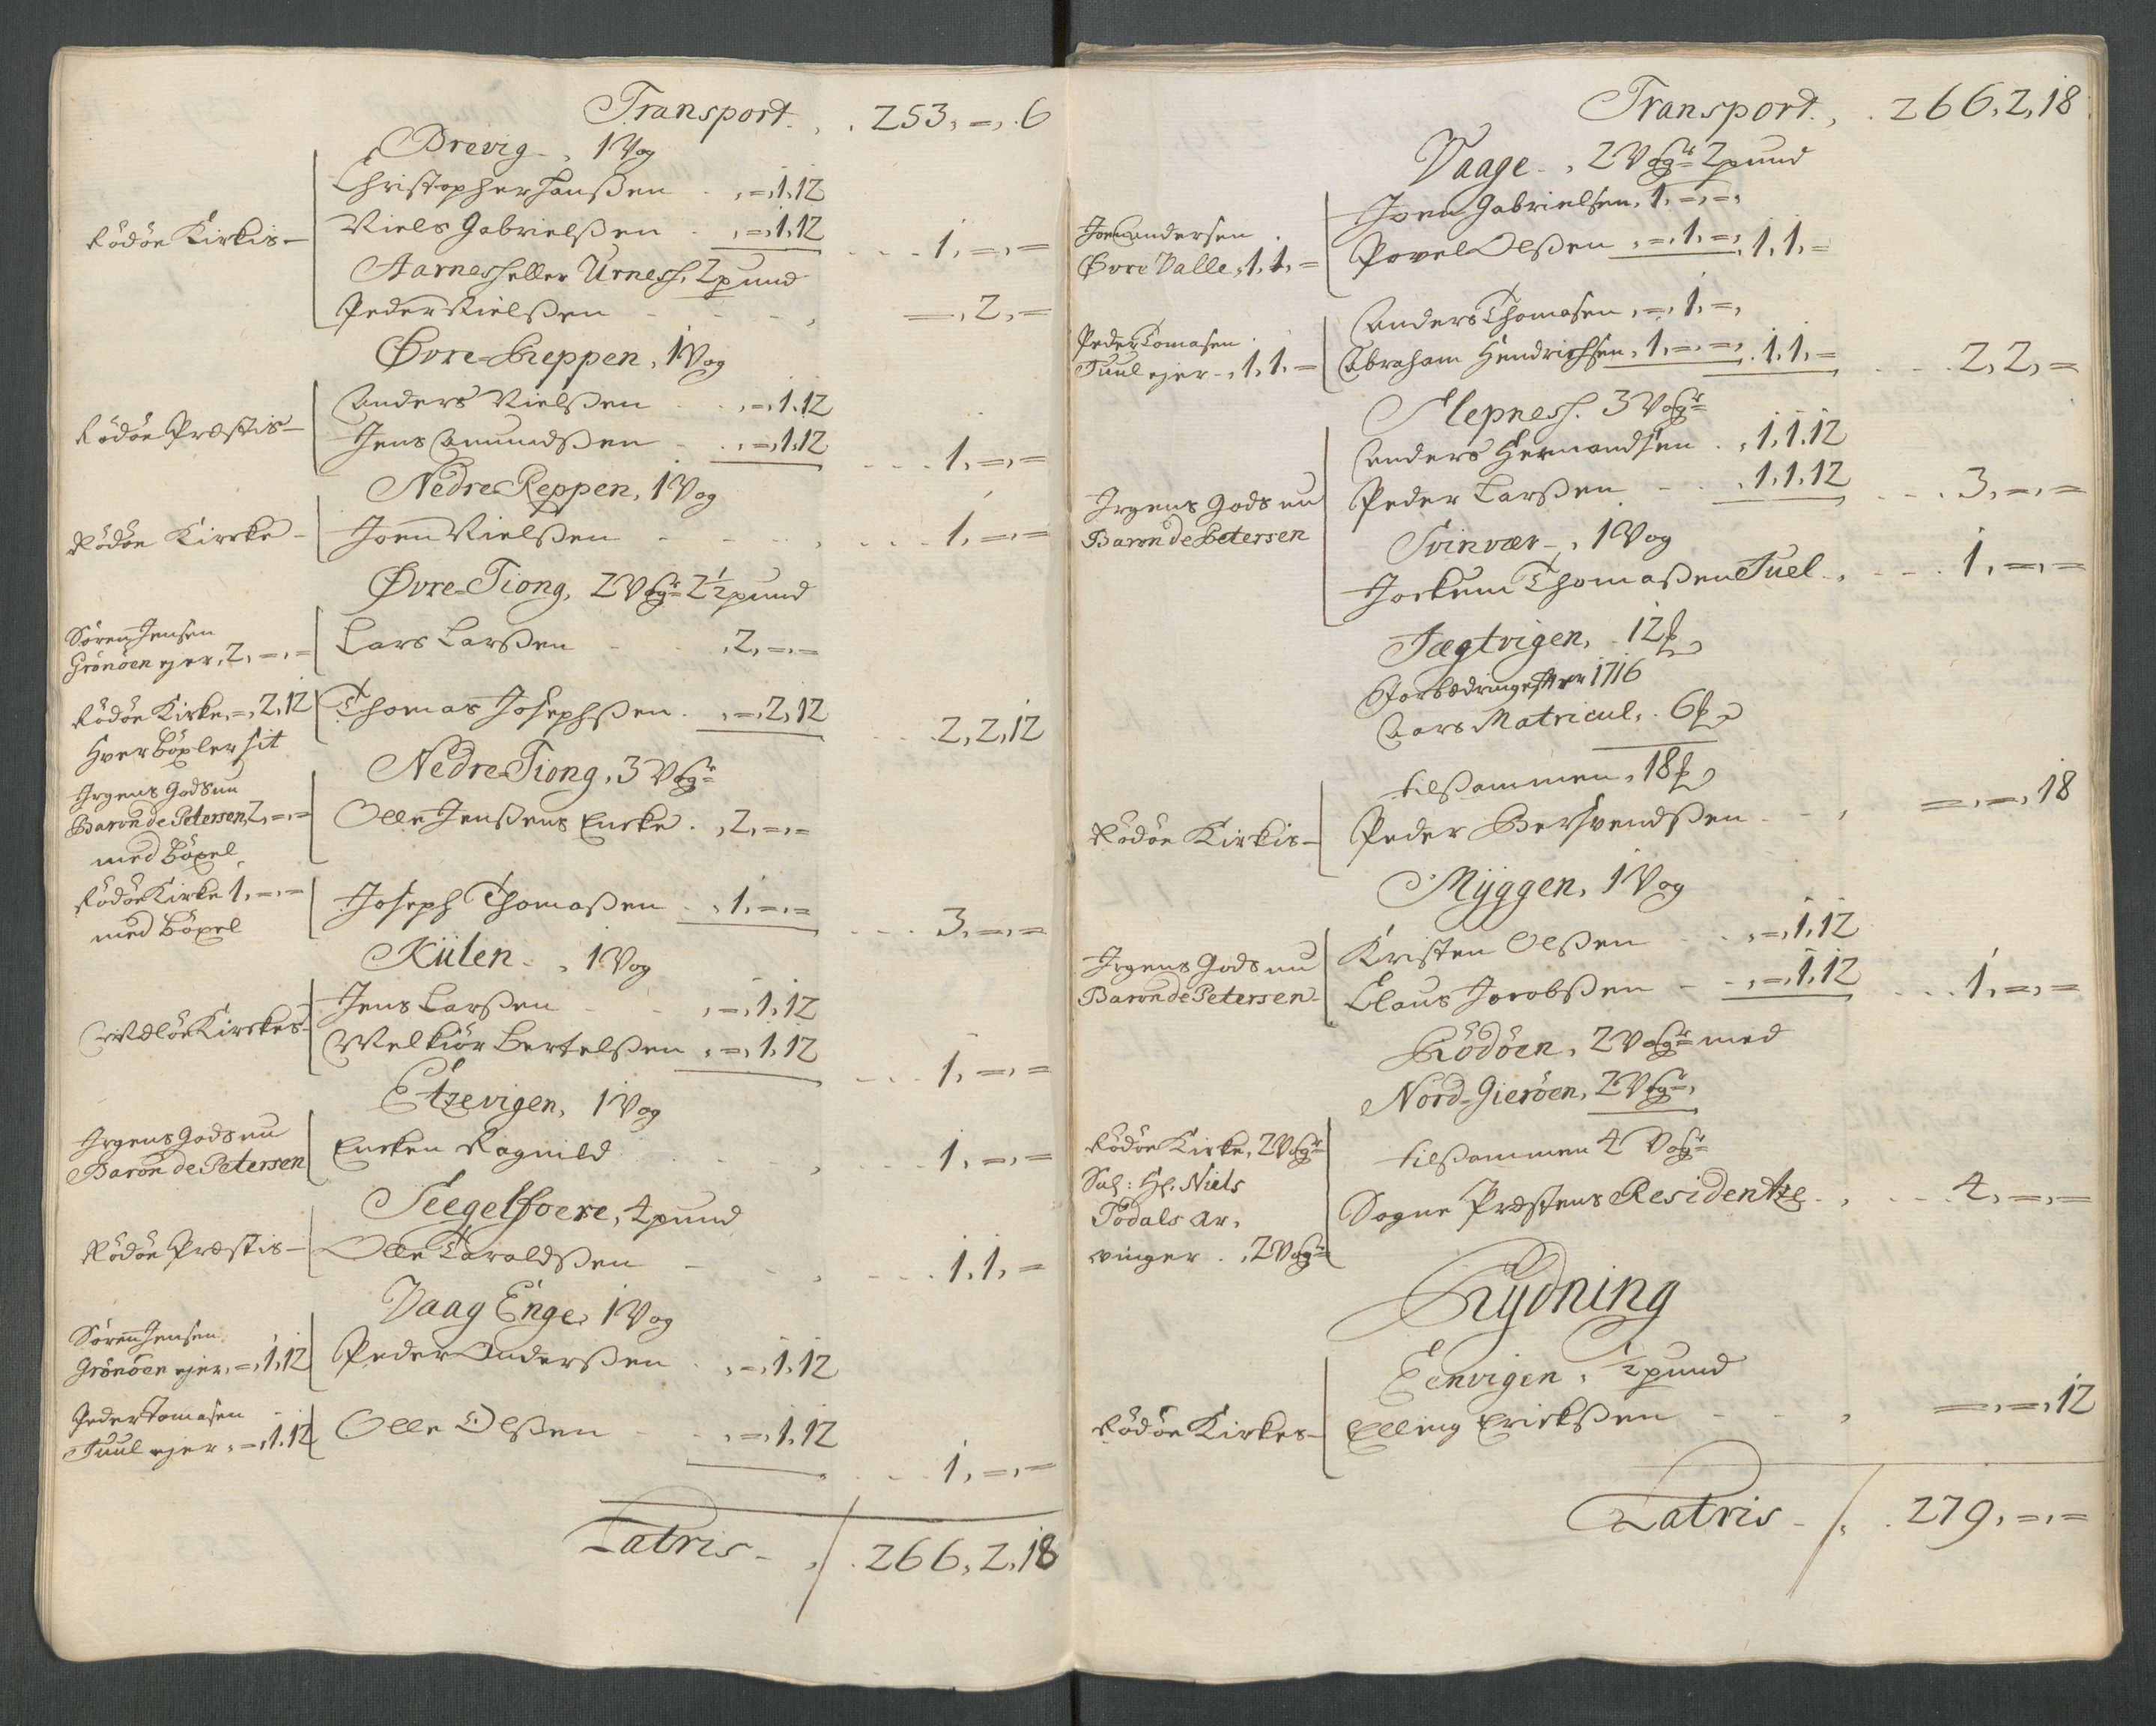 Transport . . 253, =, 6
Brevig , 1 Vog
Rödöe Kirkis –
Christopher Hanßen . , =, 1, 12
Niels Gabrielßen . , =, 1, 12 . . . 1, =, =
Aarnesh eller Urnesh, 2 pund
Peder Nielßen - - - , =, 2, =
Øvre-Reppen, 1 Vog
Rödöe Præstis –
Anders Nielßen . . , =, 1, 12
Jens Amundßen . , =, 1, 12 . . . 1, =, =
Nedre Reppen, 1 Vog
Rödöe Kirke – Joen Nielßen - - - , . . . 1, =, =
Øvre-Tiong, 2 Vogr 2½ pund
Sören Jensen
Grönöen ejer, 2, =, =
Lars Larßen - - , 2, =, =
Rödöe Kirke, =, 2, 12
Hver böxler sit
Thomas Josephßen . , =, 2, 12 . . 2, 2, 12
Nedre Tiong, 3 Vogr
Irgens Gods nu
Baron de Petersen, 2, =, =
med böxel
Olle Jenßens Encke . , 2, =, =
Rödöe Kirke 1, =, =
med böxel
Joseph Thomaßen . , 1, =, = . . . 3, =, =
Kiilen , 1 Vog
Kirkes
Jens Larßen - - , =, 1, 12
Melkiör Bertelßen , =, 1, 12 . . . 1, =, =
Etzevigen, 1 Vog
Irgens Gods nu
Baron de Petersen
Encken Ragnild . . , . . . 1, =, =
Seegelfoere, 4 pund
Rödöe Præstis –
Olle Taraldßen - - , . . . 1, 1, =
Vaag Enge, 1 Vog
Sören Jensen
Grönöen ejer, =, 1, 12
Peder Anderßen . , =, 1, 12
Peder Tomasen
Juul ejer, =, 1, 12
Olle Olßen - , =, 1, 12 . . . 1, =, =
Latris - , /. 266, 2, 18
Transport . , . 266, 2, 18
Vaage , 2 Vogr 2 pund
Joen Andersen
Øvre Valle, 1, 1, =
Joen Gabrielsen, 1, =, =,
Povel Olßen , =, 1, =, 1, 1, =
Peder Tomasen
Juul ejer , 1, 1, =
Anders Thomasen , =, 1, =,
Abraham Hendrichsen, 1, =, =, 1, 1, = . . . 2, 2, =
Slepnesh. 3 Vogr
Irgens Gods nu
Baron de Petersen
Anders Hermandsen . , 1, 1, 12
Peder Larßen - . , 1, 1, 12 . . . 3, =, =
Svinvær , 1 Vog
Jockum Thomaßen Juel . , . . . 1, =, =
Jægtvigen, 12
Forbedring efter 1716
Aars Matricul, . 6
tilsammen, 18
Rödöe Kirkis –
Peder Bersvendßen - - , =, =, 18
Myggen, 1 Vog
Irgens Gods nu
Baron de Petersen
Kristen Olßen - - , =, 1, 12
Claus Jacobßen - - , =, 1, 12 . . . 1, =, =
Rödöen, 2 Vogr med
Nord-Gieröen, 2 Vogr,
Rödöe Kirke, 2 Vogr
Sal: Hr. Niels
Todals Ar,
vinger . , 2 Vogr
tilsammen 4 Vogr
Sogne Præstens Residentze . , . . . 4, =, =
Rydning
Eenvigen , ½ pund
Rödöe Kirkes –
Elling Erickßen - - , =, =, 12
Latris - /, . 279, =, =